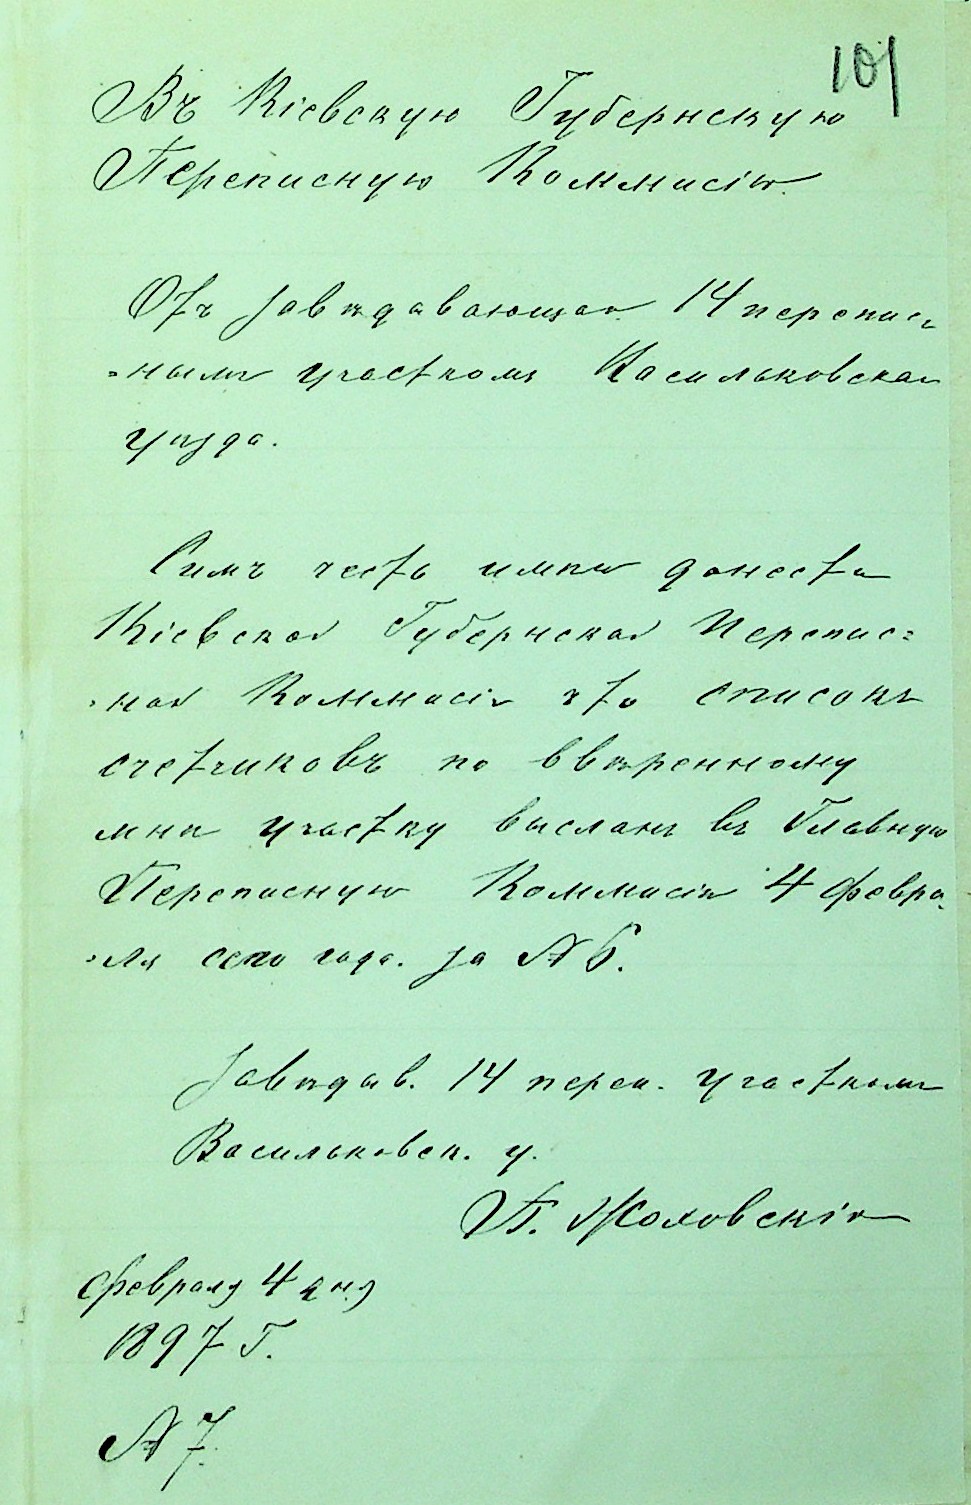 101
Въ Кіевскую Губернскую
Переписную Коммисію.
Отъ завѣдывающаго 14 перепис-
=нымъ участкомъ Васильковскаго
уѣзда.
Симъ честь имѣю донести
Кіевской Губернской Перепис=
=ной Коммисіи что списокъ
счетчиковъ по ввѣренному
мнѣ участку высланъ въ Главную
Переписную Коммисію 4 февра-
=ля сего года. за № 6.
Завѣдыв. 14 переп. участкомъ
Васильковск. у.
П. Жоховскій
февраля 4 дня
1897 г.
№ 7.